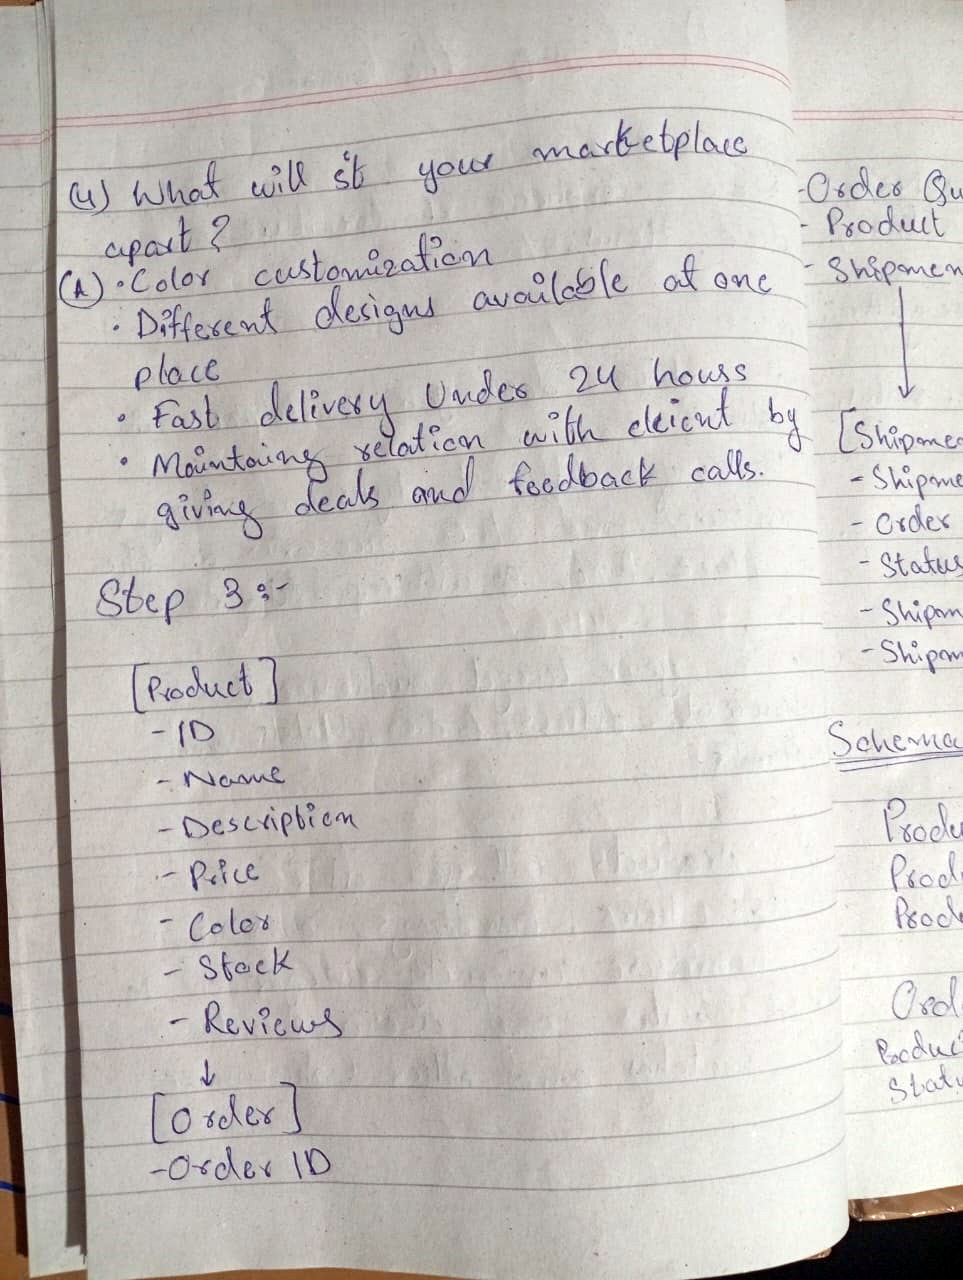 (4) What will st your marketplace
apart ?
(A) • Color customization
• Different designs available at one
place
• Fast delivery Under 24 hours
• Maintaing relation with cleient by
giving deals and feedback calls.
Step 3 :-
[Product]
- ID
- Name
- Description
- Price
- Color
- Stock
- Reviews
↓
[Order]
- Order ID
- Order Qu
- Product
- Shipmen
↓
[Shipme
- Shipme
- Order
- Status
- Shipm
- Shipm
Schema
Produ
Prod
Prod
Ord
Product
Statu